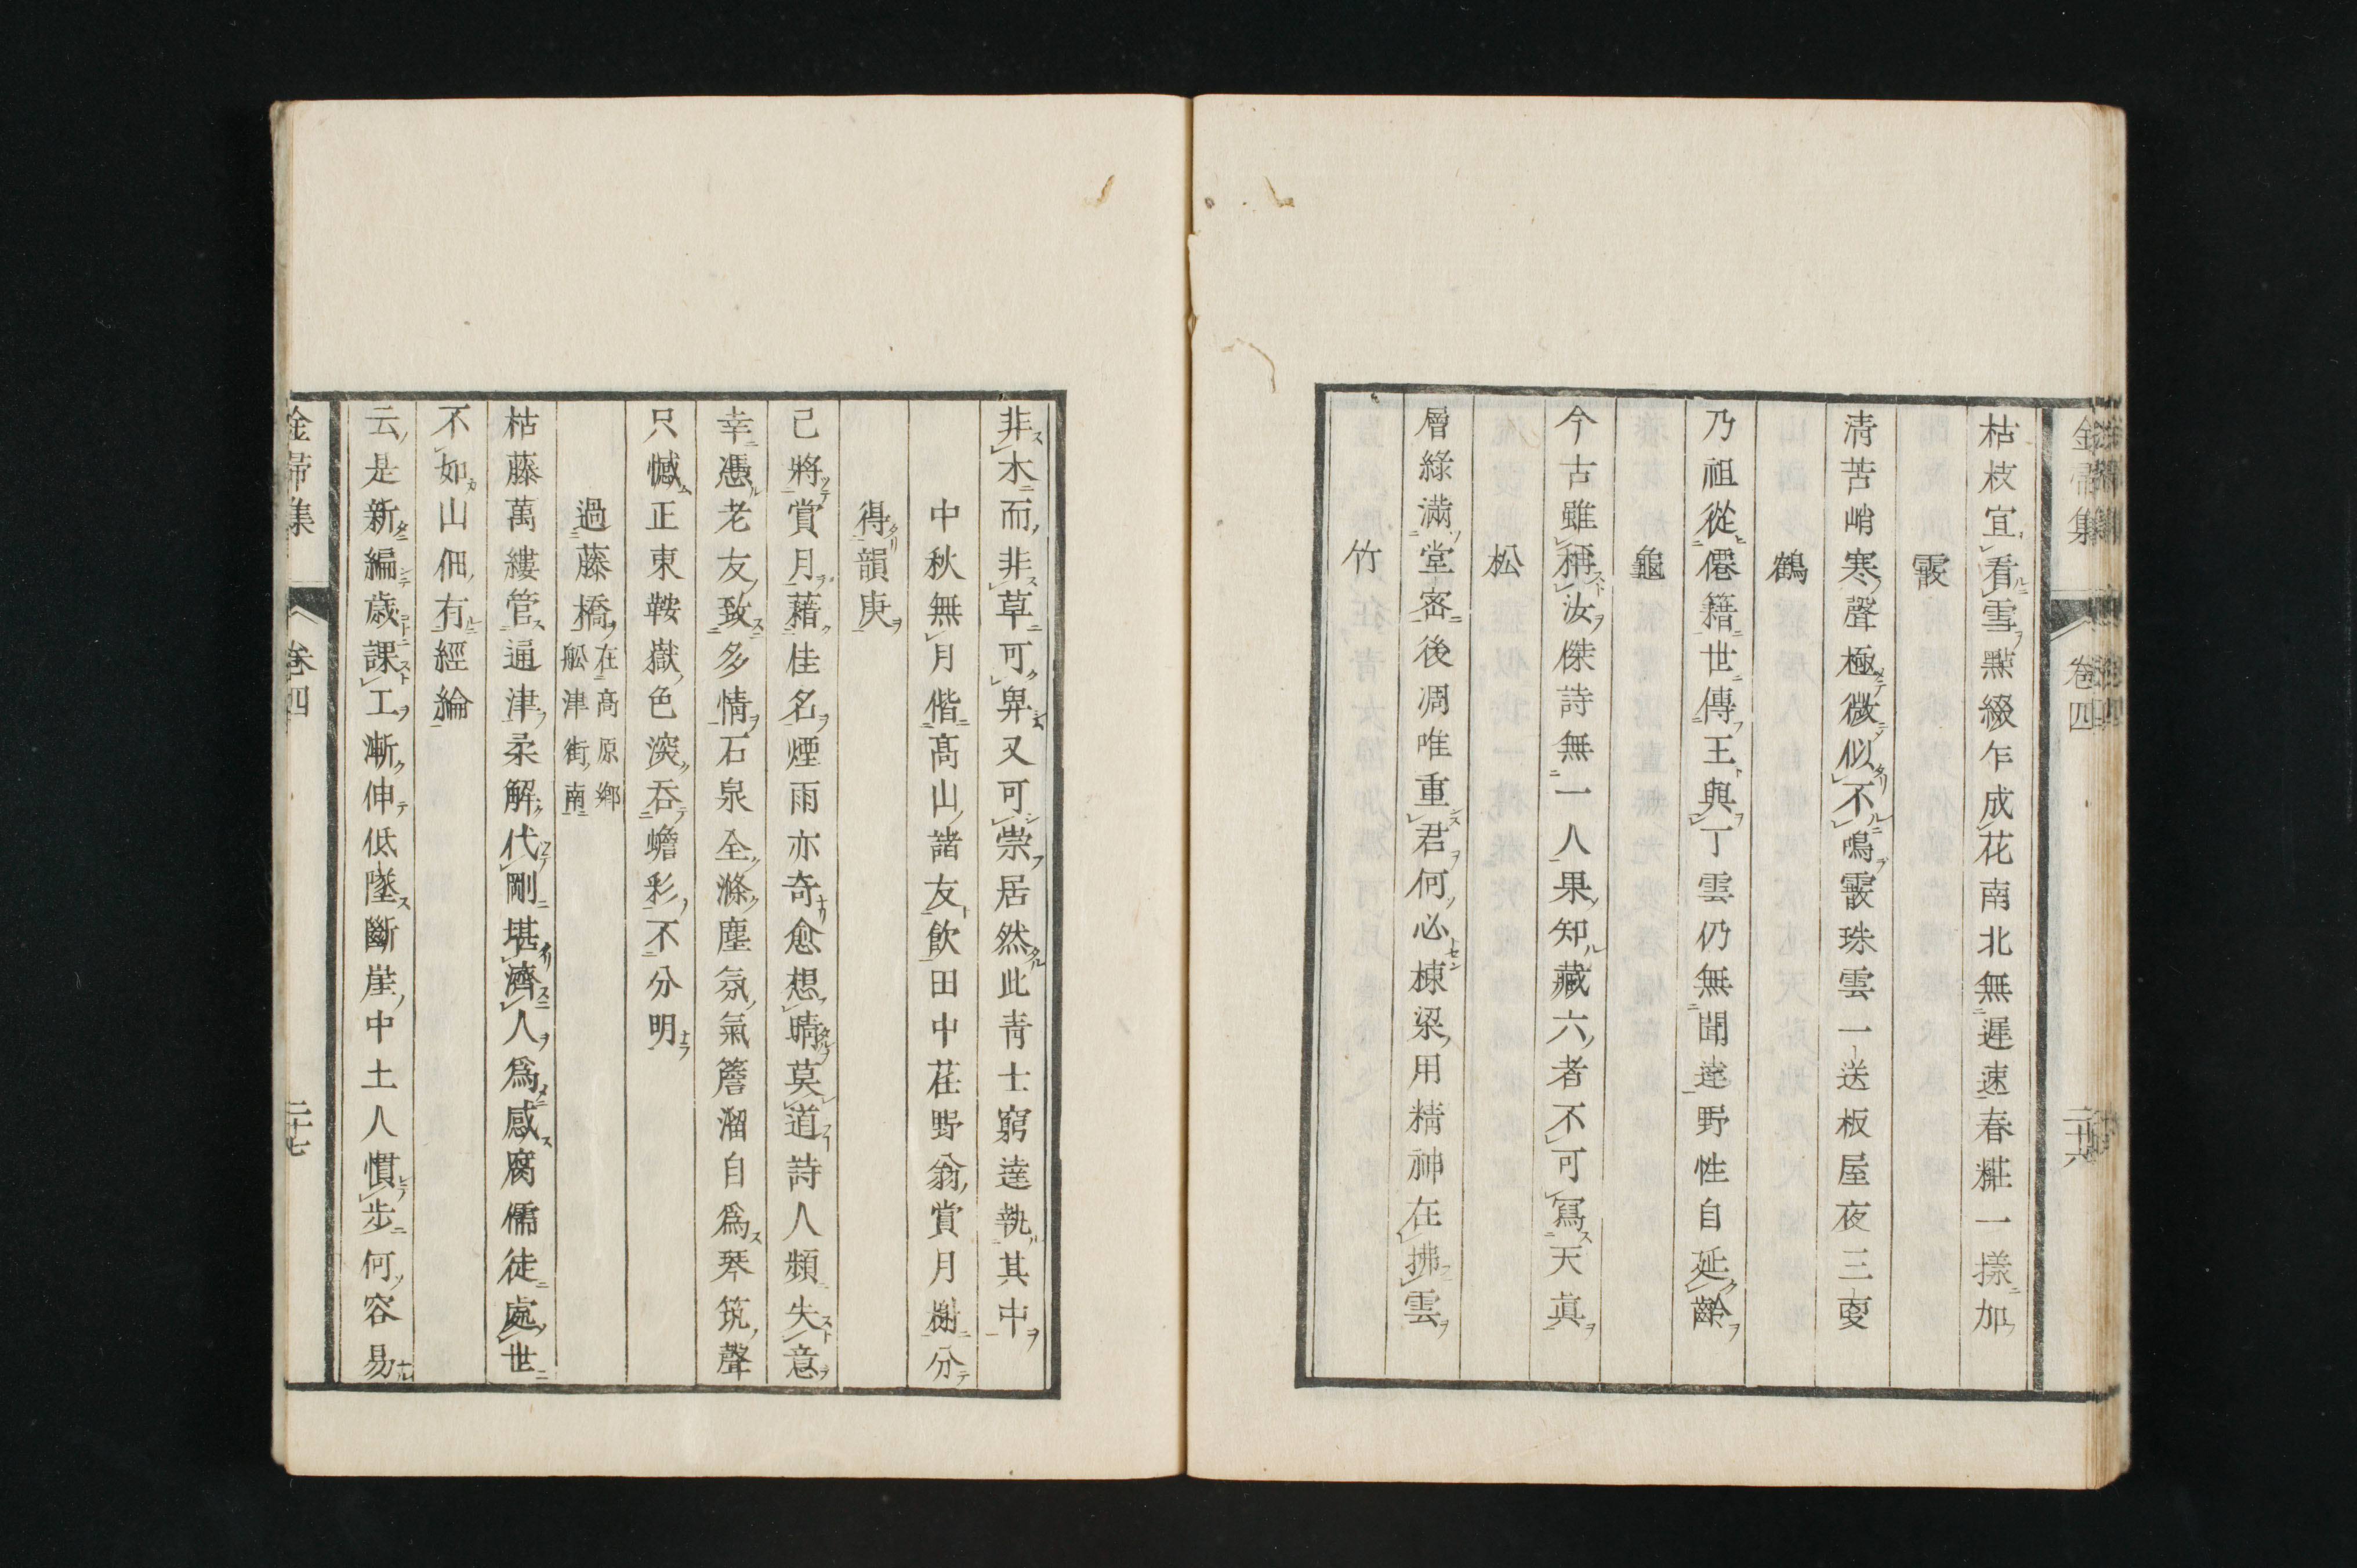 金帚集 卷四 二十六
枯枝宜看雪點綴乍成花南北無遲速春糚一㨾加
霰
清苦峭寒聲極微似不鳴霰珠雲一送板屋夜三更
鶴
乃祖從僊籍世傳王與丁雲仍無聞達野性自延齡
龜
今古雖稱汝傑詩無一人果知藏六者不可寫天眞
松
層綠滿堂密後凋唯重君何必棟梁用精神在拂雲
竹
非木而非草可卑又可崇居然此靑士窮達執其中
中秋無月偕高山諸友飮田中荏野翁賞月榭分
得韻庚
已將賞月藉佳名煙雨亦奇愈想晴莫道詩人頻失意
幸憑老友致多情石泉全滌塵氛氣簷溜自爲琴筑聲
只憾正東鞍嶽色深吞蟾彩不分明
過藤橋在高原鄉
舩津街南
枯藤萬縷管通津柔解代剛堪濟人爲感腐儒徒處世
不如山佃有經綸
云是新編歲課工漸伸低墜斷崖中土人慣步何容易
金帚集 卷四 二十七